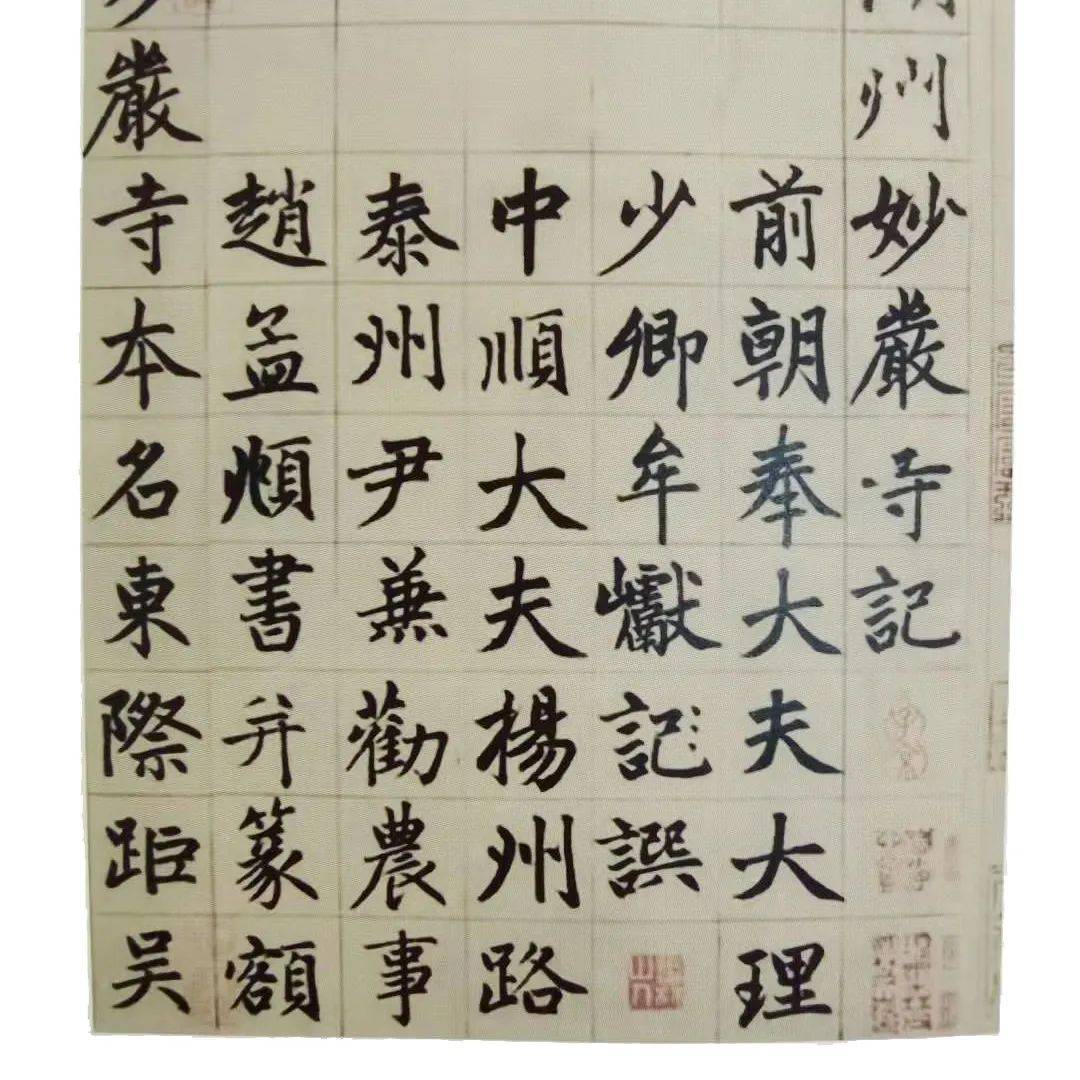 州妙嚴寺記
前朝奉大夫大理
少卿牟巘記譔
中順大夫楊州路
泰州尹兼勸農事
趙孟頫書并篆額
嚴寺本名東際距吳